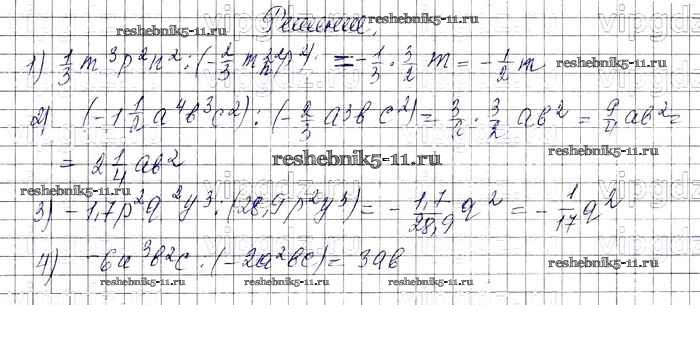 Решение.
1) 1/3 m³p²n² : (-2/3 m²n²p²) = -1/3 · 3/2 m = -1/2 m
2) (-1 1/2 a⁴b³c²) : (-2/3 a³bc²) = 3/2 · 3/2 ab² = 9/4 ab² =
= 2 1/4 ab²
3) -1,7p²q²y³ : (28,9p²y³) = -1,7/28,9 q² = -1/17 q²
4) -6a³b²c : (-2a²bc) = 3ab
reshebnik5-11.ru
reshebnik5-11.ru
reshebnik5-11.ru
reshebnik5-11.ru
reshebnik5-11.ru
reshebnik5-11.ru
reshebnik5-11.ru
reshebnik5-11.ru
reshebnik5-11.ru
reshebnik5-11.ru